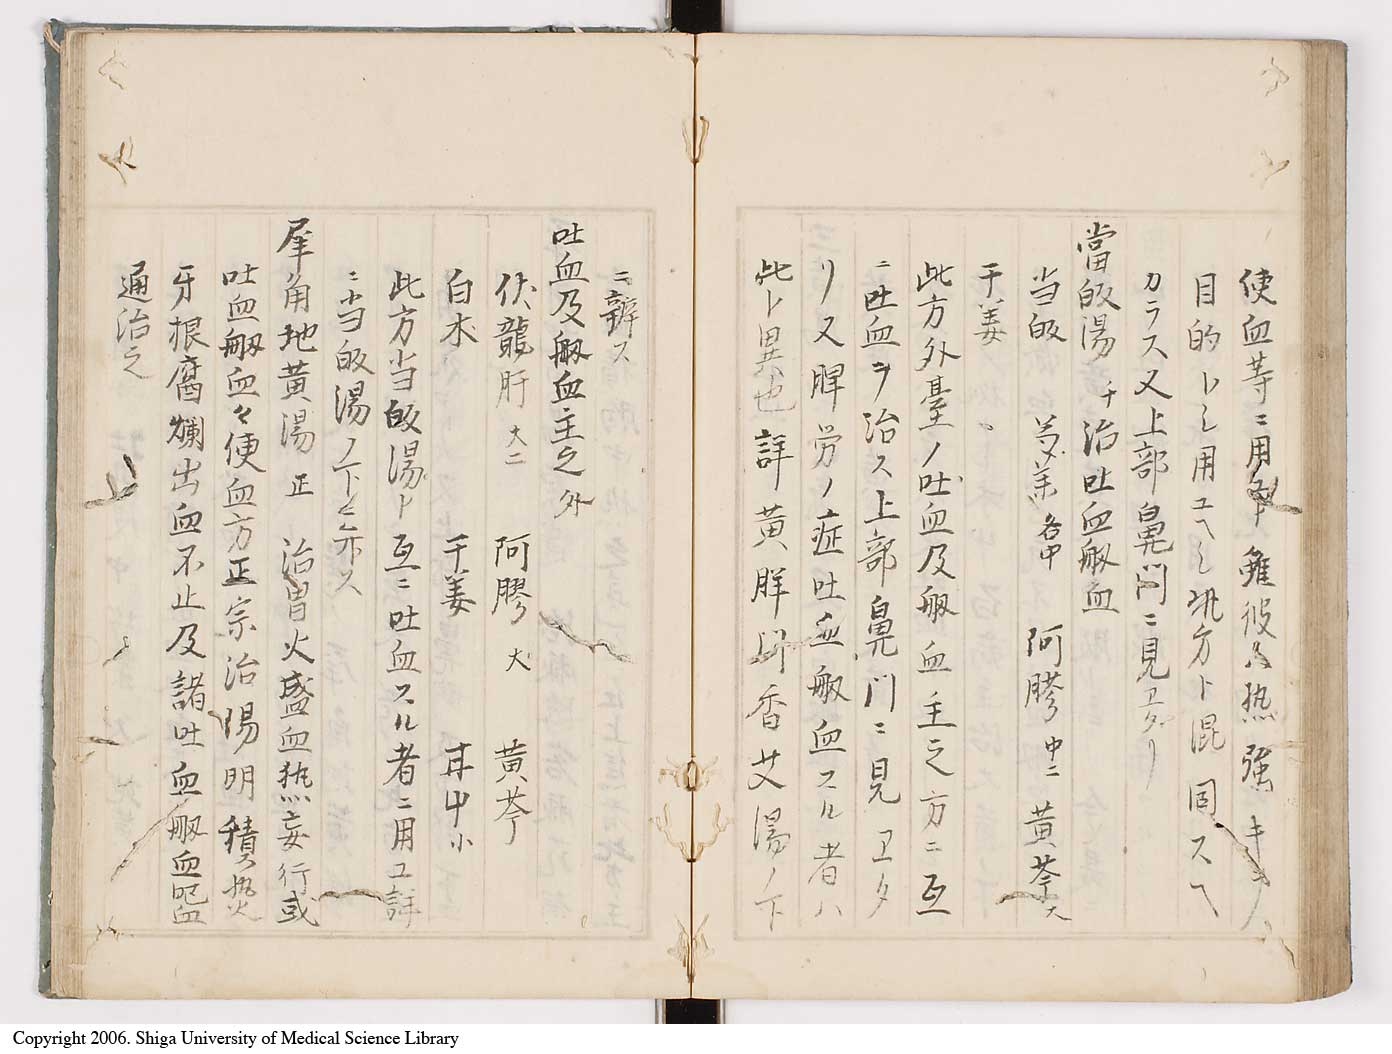 使血等ニ用テ雖彼ハ熱強キヲ
目的トシ用ユヘシ此方ト混同スヘ
カラス又上部鼻門ニ見ヱタリ
當皈湯 千 治吐血衂血
当皈 芍薬 各中 阿膠 中二 黄芩 大
干姜
此方外臺ノ吐血及衂血主之方ニ互
ニ吐血ヲ治ス上部鼻門ニ見ヱタ
リ又脾労ノ症吐血衂血スル者ハ
此ト異也詳黄胖門香艾湯ノ下
ニ辨ス
吐血及衂血主之 外
伏龍肝 大二 阿膠 大 黄芩
白朮 干姜 甘中小
此方当皈湯ト互ニ吐血スル者ニ用ユ詳
ニ当皈湯ノ下ニ弁ス
犀角地黄湯 正 治胃火盛血熱妄行或
吐血衂血々便血方正宗治陽明積熱
牙根腐爛出血不止及諸吐血衂血
通治之
Copyright 2006. Shiga University of Medical Science Library